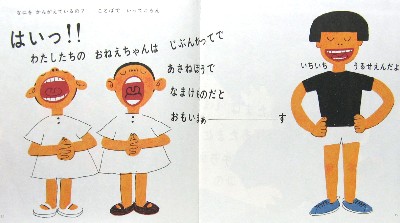 なにを かんがえているの? ことばで いってごらん
はいっ!!
わたしたちの おねえちゃんは じぶんかってで
あさねぼうで
なまけものだと
おもいまぁ―――す
いちいち うるせえんだよ